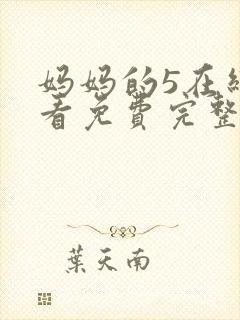 妈妈的5在线
看免费完整
葉天南